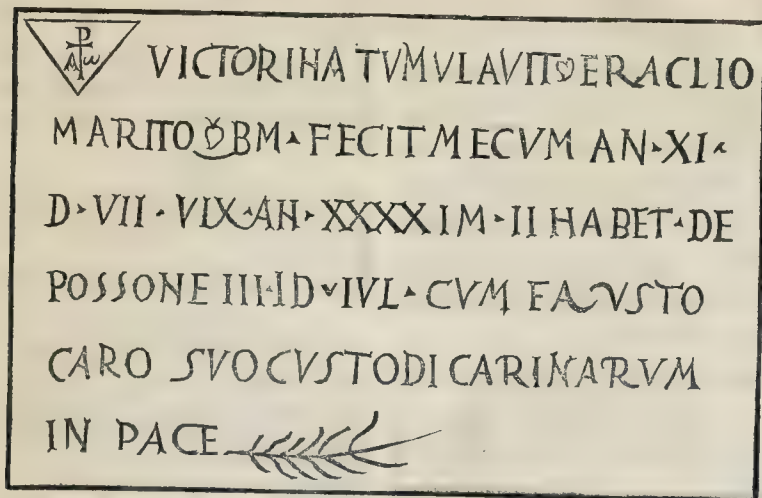 ☧ A ω VICTORINA TVMVLAVIT ERACLIO
MARITO BM · FECIT MECVM AN · XI ·
D · VII · VIX · AN · XXXXI M · II HABET · DE
POSSONE IIII · ID · IVL · CVM FAVSTO
CARO SVO CVSTODI CARINARVM
IN PACE